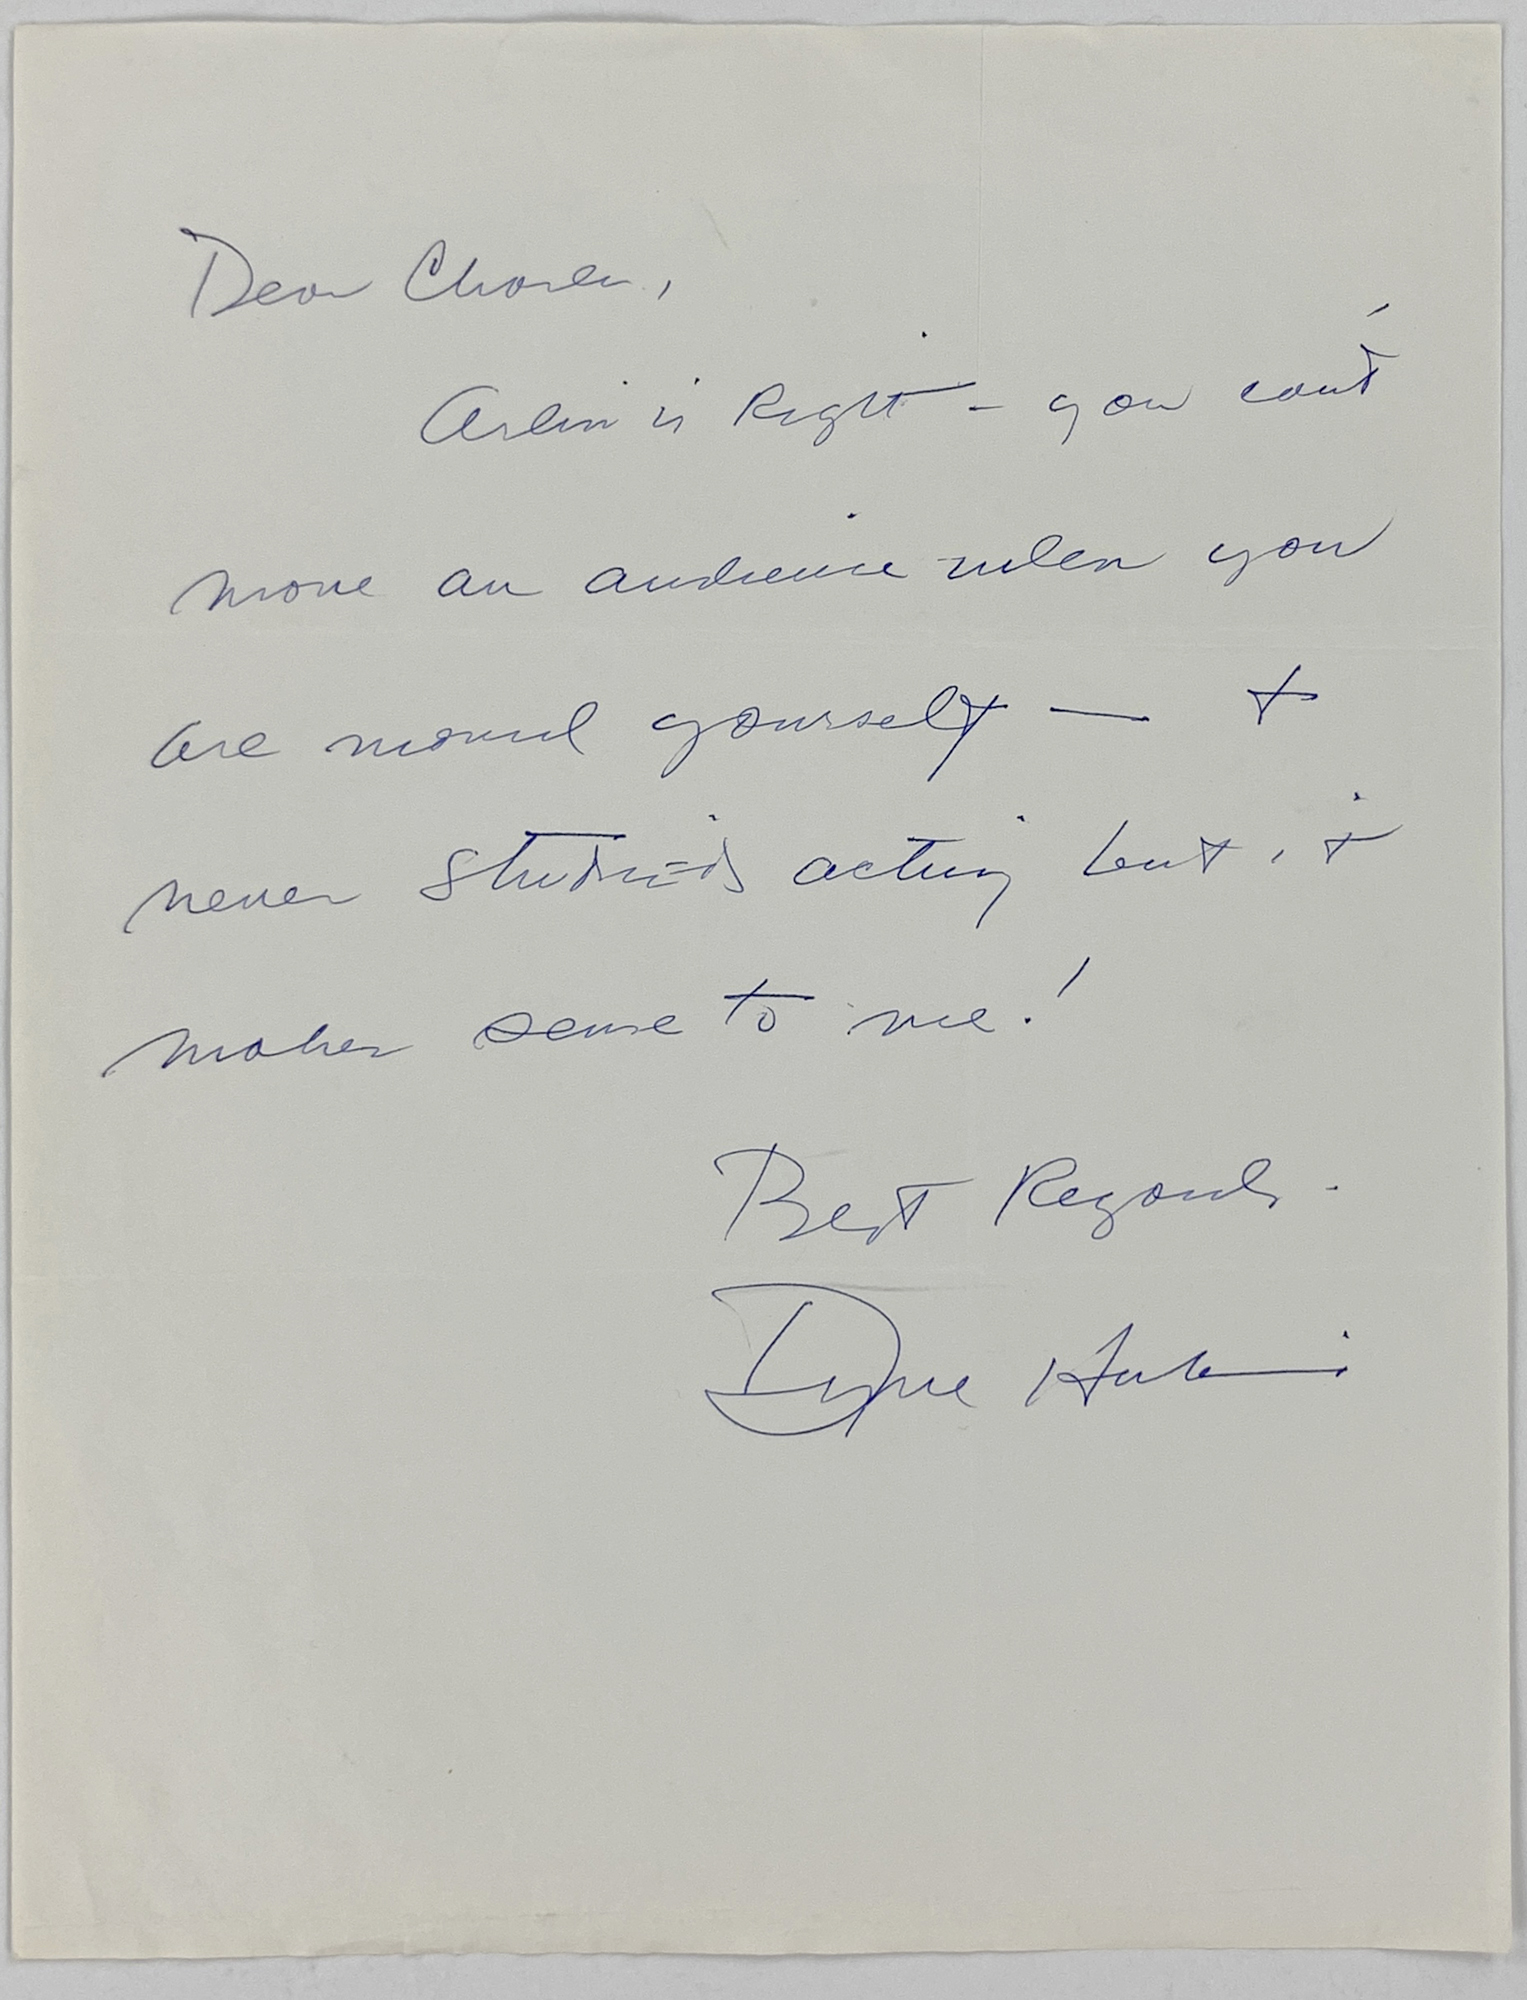 Dear Charles,
Arlin is Right - you can't
move an audience when you
are moved yourself — I
never studied acting but it
makes sense to me!
Best Regards.